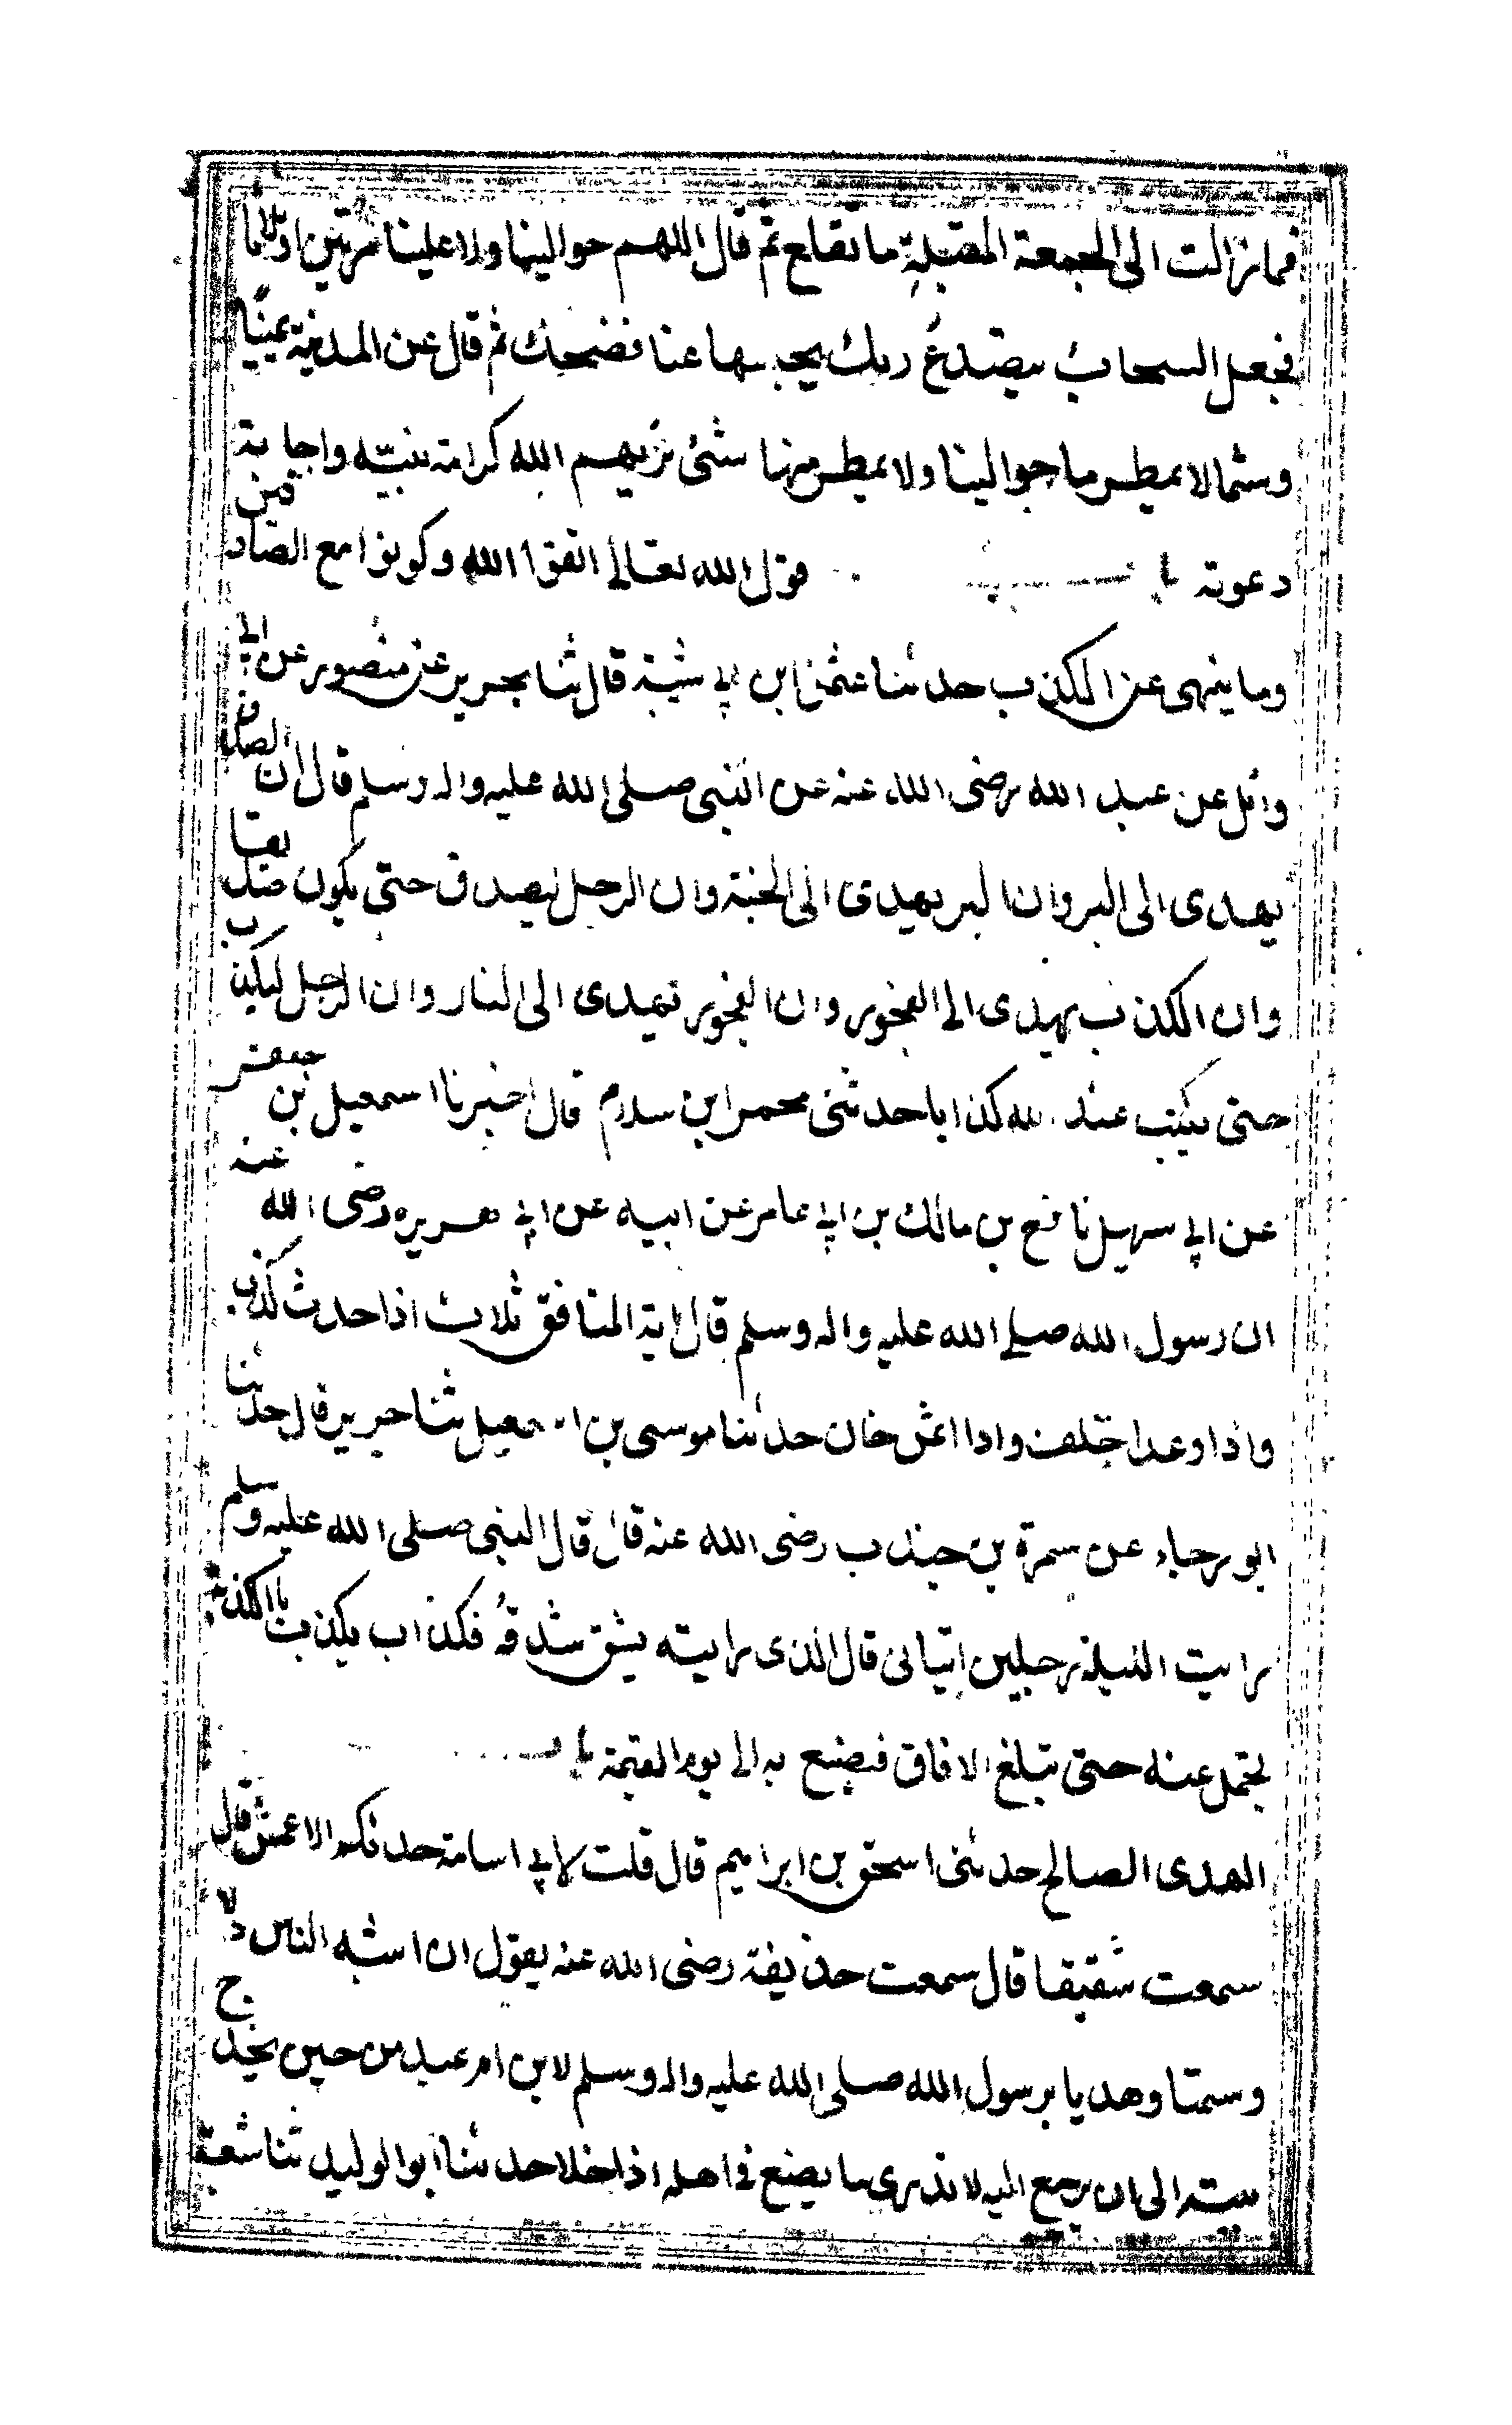 فمازالت الى الجمعة المقبلة ما تقلع ثم قال اللهم حوالينا ولا علينا مرتين اوثلاثا
فجعل السحاب يتصدع ربك يحبسها عنا فضحك ثم قال عن المدينة يمينا
وشمالا يمطر ما حوالينا ولا يمطر منها شئ يريهم الله كرامة نبيه واجابة
دعوته باب قول الله تعالى اتقوا الله وكونوا مع الصادقين
وما ينهى عن الكذب حدثنا عثمن ابن ابي شيبة قال ثنا جرير عن منصور عن ابي
وائل عن عبد الله رضى الله عنه عن النبى صلى الله عليه واله وسلم قال ان الصدق
يهدى الى البر وان البر يهدى الى الجنة وان الرجل ليصدق حتى يكون صديقا
وان الكذب يهدى الى الفجور وان الفجور تهدى الى النار وان الرجل ليكذب
حتى يكتب عند الله كذابا حدثنى محمد ابن سلام قال اخبرنا اسمعيل بن جعفر
عن ابي سهيل نافع بن مالك بن ابي عامر عن ابيه عن ابي هريره رضى الله عنه
ان رسول الله صلى الله عليه واله وسلم قال اية المنافق ثلاث اذا حدث كذب
واذا وعد اخلف واذا ائتمن خان حدثنا موسى بن اسمعيل ثنا جرير قال حدثنا
ابو رجاء عن سمرة بن جندب رضى الله عنه قال قال النبى صلى الله عليه وسلم
رايت الليلة رجلين اتيانى قال الذى رايته يشق شدقه فكذاب يكذب بالكذبة
تحمل عنه حتى تبلغ الافاق فيصنع به الى يوم القيمة باب
الهدى الصالح حدثنى اسحق بن ابراهيم قال قلت لابي اسامة حدثكم الاعمش قال
سمعت شقيقا قال سمعت حذيفة رضى الله عنه يقول ان اشبه الناس دلا
وسمتا وهديا برسول الله صلى الله عليه واله وسلم لابن ام عبد من حين يخرج
بيته الى ان يرجع اليه لا ندرى ما يصنع في اهله اذا خلا حدثنا ابو الوليد ثنا شعبة